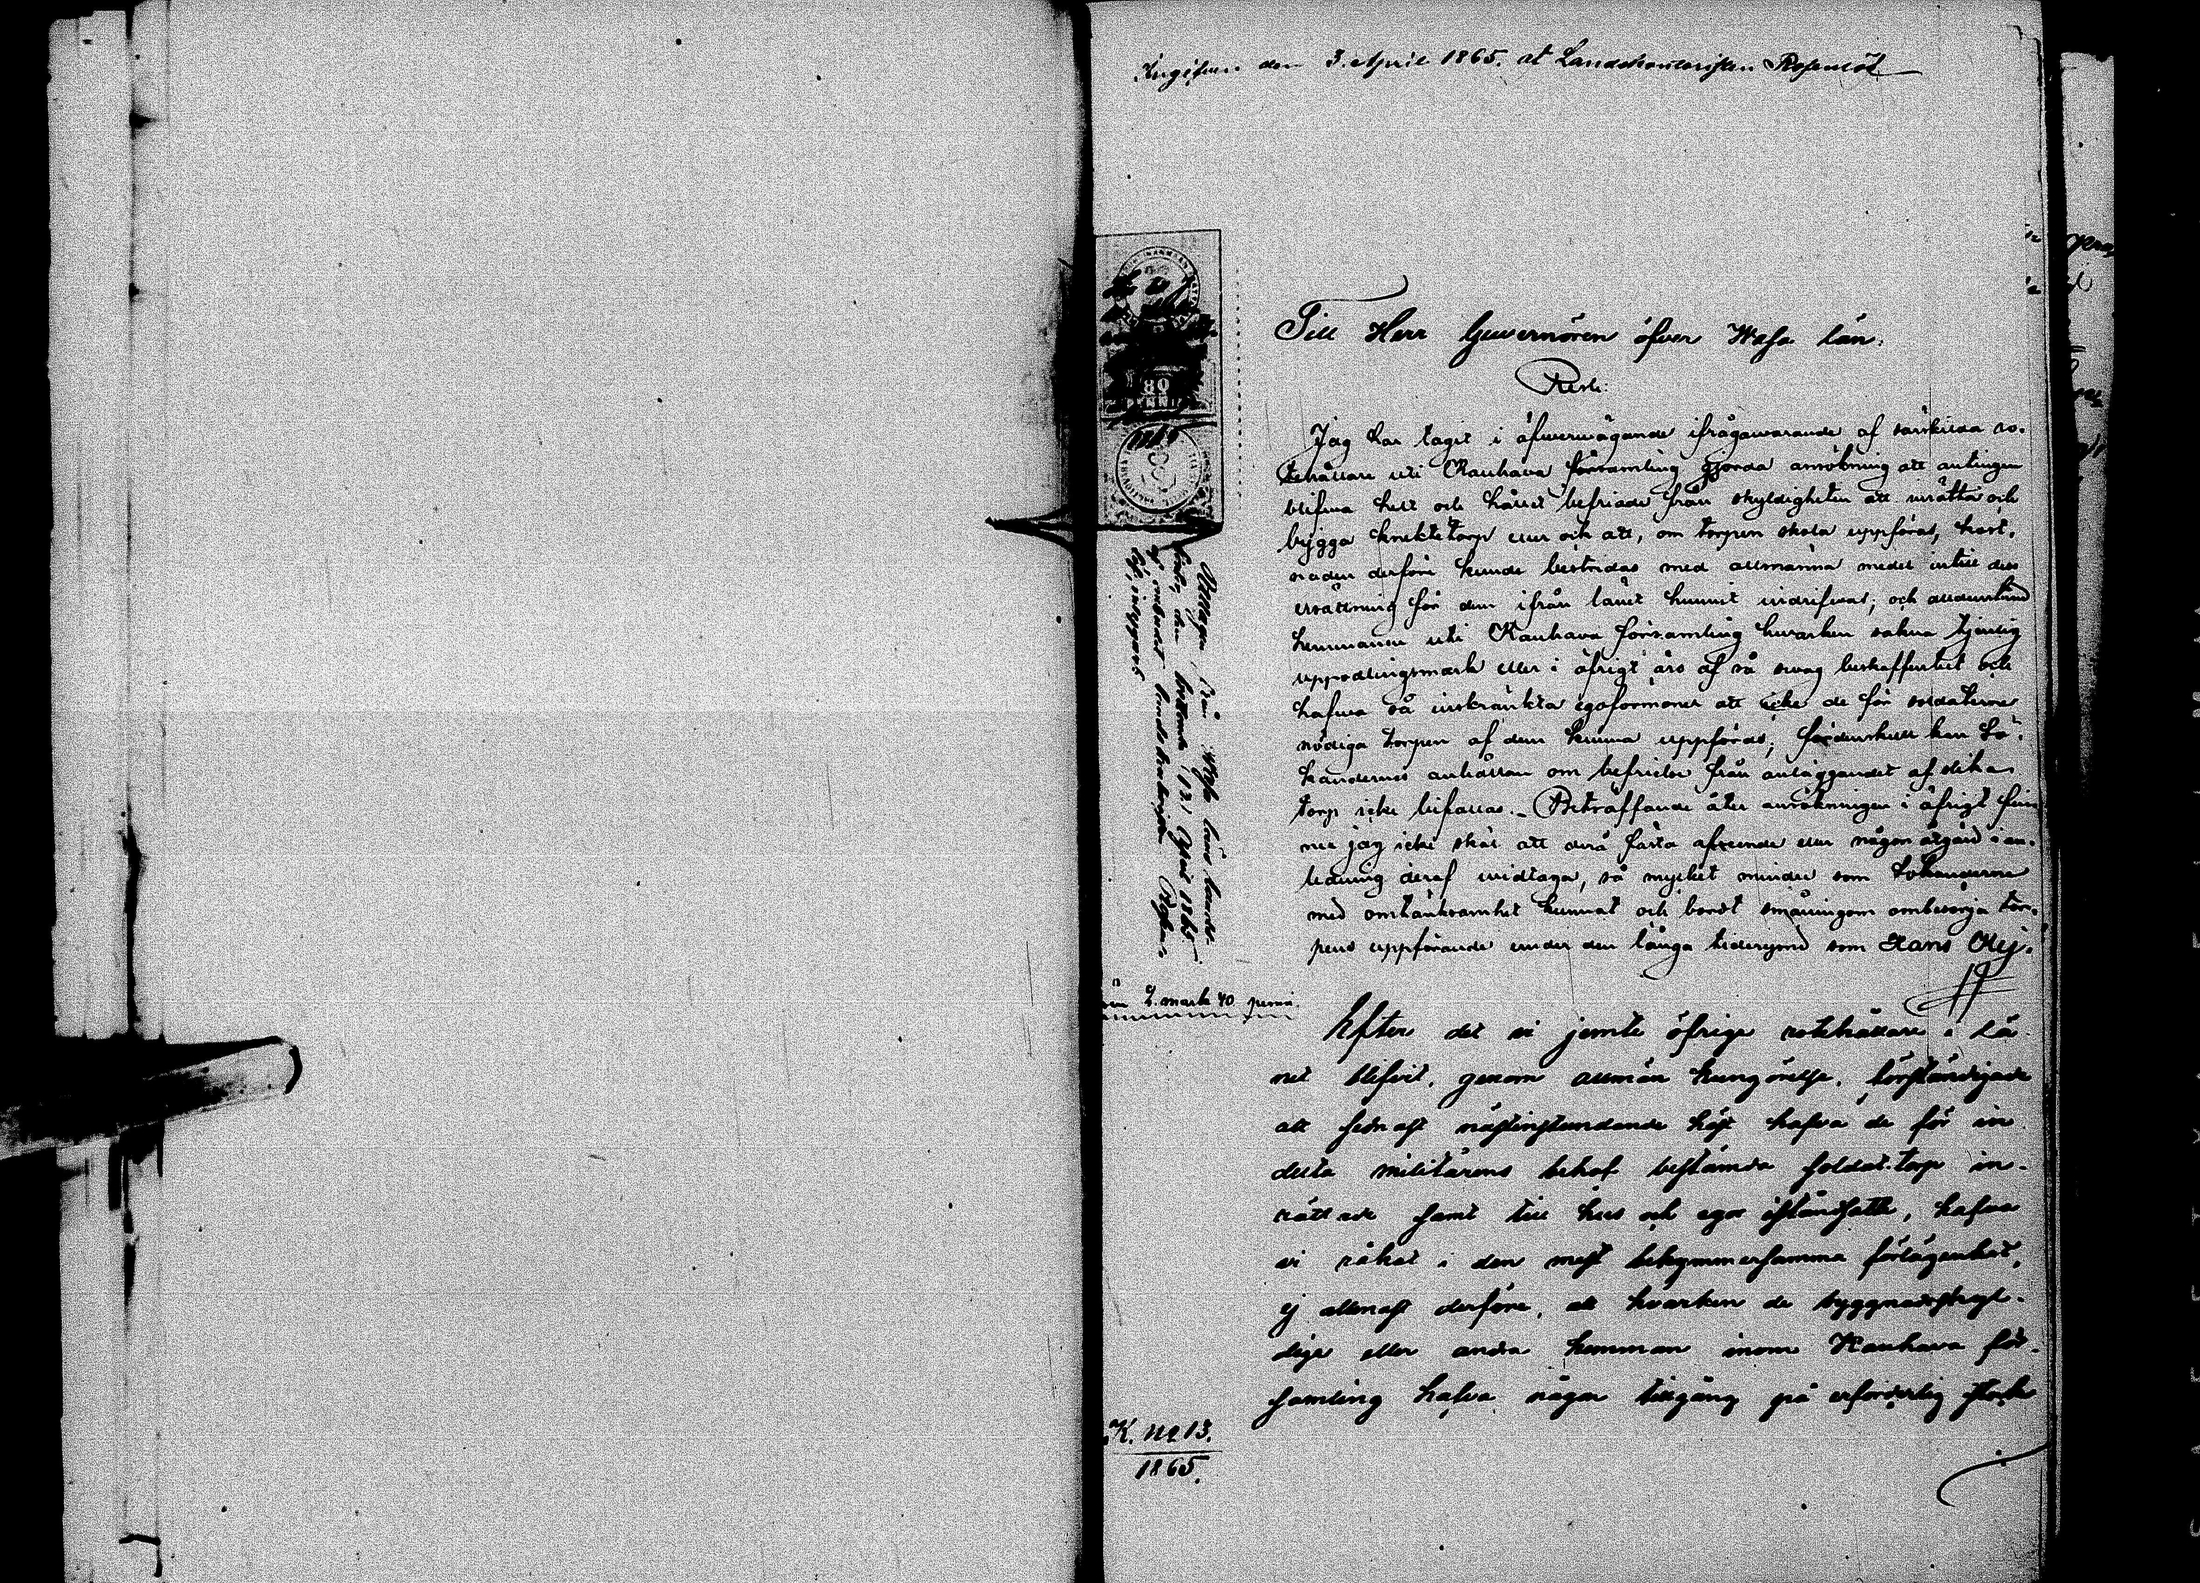 Ingifven den 3. April 1865. at Landskontoristen Rosenlöf
Till Herr Guvernören öfver Wasa län.
Resk:
Jag har tagit i öfwerwägande ifrågawarande af särskilda ro-
tehållare uti Kauhava församling gjorda ansökning att antingen
blifwa helt och hållet befriade från skyldigheten att inrätta och
bygga knektetorp eller och att, om torpen skola uppföras, kost-
naden derföre kunde bestridas med allmänna medel intill dess
ersättning för dem ifrån länet hunnit indrifwas; och alldenstund
hemmanen uti Kauhava församling hwarken sakna tjenlig
uppodlingsmark eller i öfrigt äro af så swag beskaffenhet och
hafwa så inskränkta egoförmoner att icke de för soldaterne
nödiga torpen af dem kunna uppföras; fördenskull kan Sö-
kandernes anhållan om befrielse från anläggandet af slika
torp icke bifallas. Beträffande åter ansökningen i öfrigt fin
ner jag icke skäl att derå fästa afseende eller någon åtgärd i an-
ledning deraf widtaga, så mycket mindre som Sökanderne
med omtänksamhet kunnat och bordt småningom ombesörja tor-
pens uppförande under den långa tiderymd som Hans Kej-
Efter det vi jemte öfrige rotehållare i Lä-
net blifvit, genom allmän kungörelse, förständigade
att sednast nästinstundande höst hafva de för in
delta militärens behof bestämda soldat-torp in-
rättade samt till hus och egor iståndsatte, hafva
vi råkat i den mest bekymmersamma förlägenhet,
ej allenast derföre, att hvarken de byggnadsskyl-
dige eller andra hemman inom Kauhava för-
samling hafva någon tillgång på erforderlig stock
80
PENNI
Utslagen från Wasa läns lands-
kansli, den 12 April 1865
2. mark 40 penni.
K. No 13.
1865.